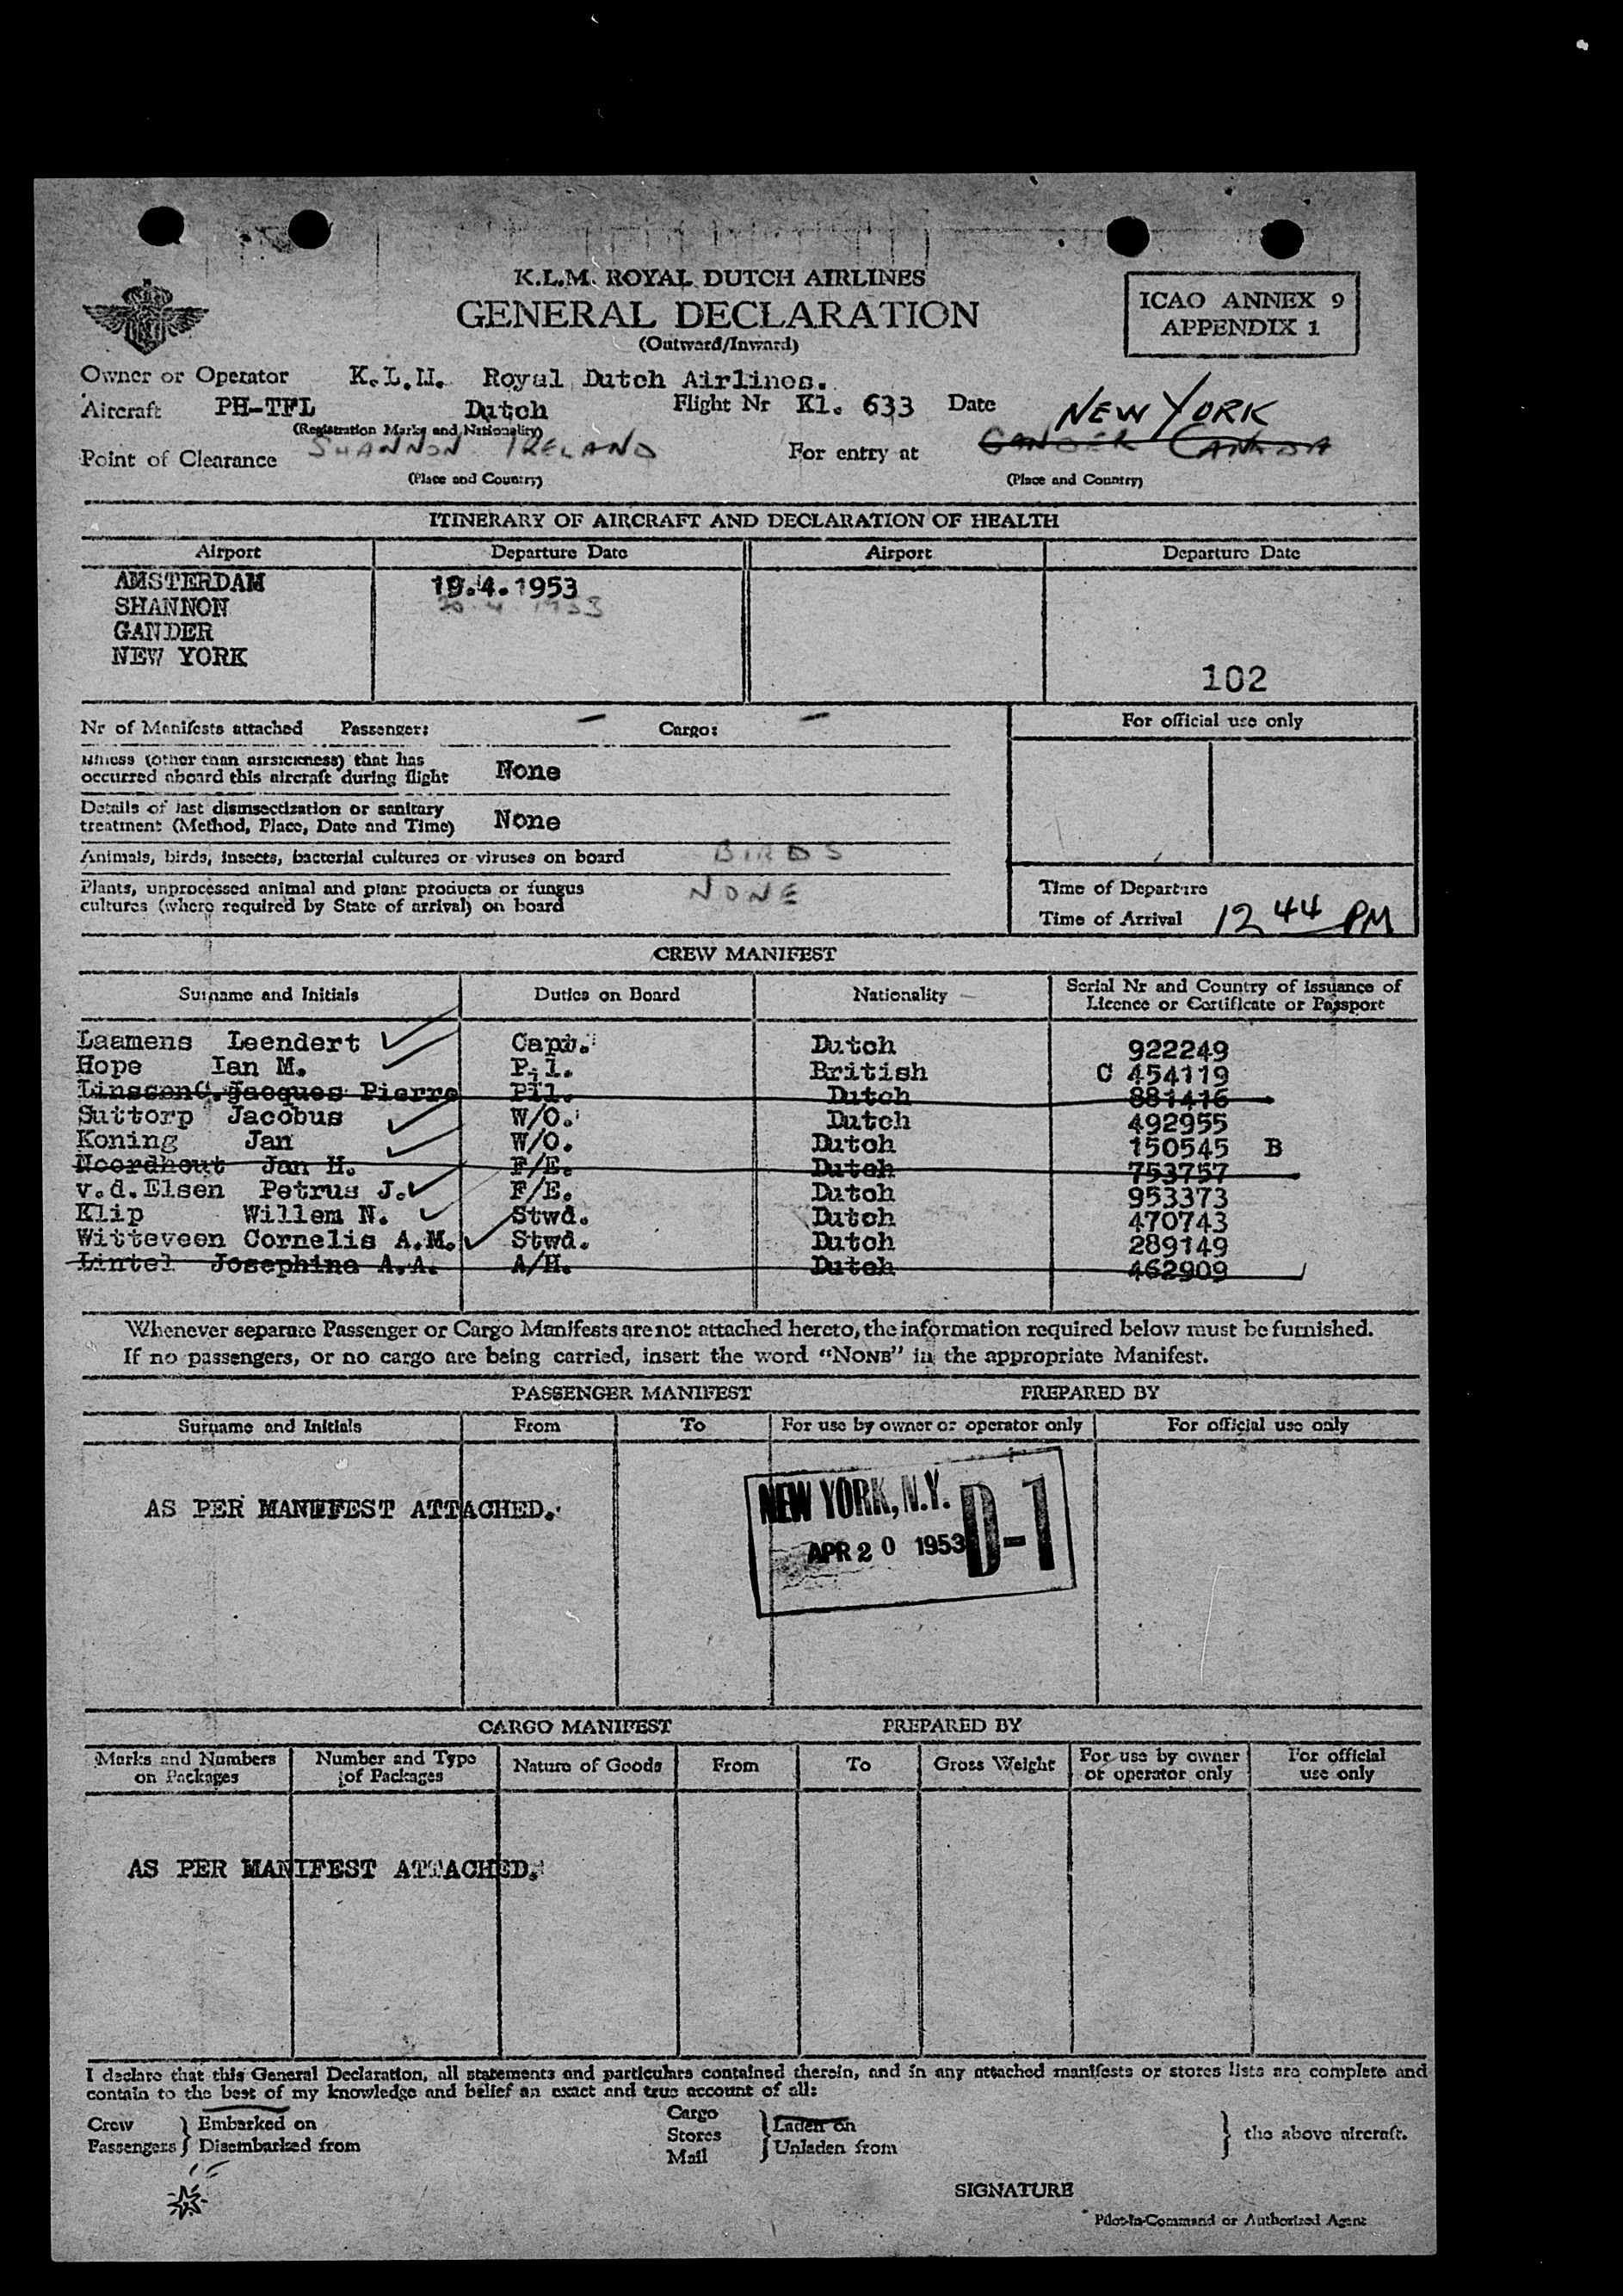 K.L.M. ROYAL DUTCH AIRLINES
GENERAL DECLARATION
(Outward/Inward)
ICAO ANNEX 9
APPENDIX 1
Owner or Operator K.L.M. Royal Dutch Airlines.
Aircraft PH-TFL Dutch Flight Nr Kl. 633 Date
(Registration Marks and Nationality)
NEW YORK
Point of Clearance SHANNON IRELAND For entry at GANDER CANADA
(Place and Country) (Place and Country)
ITINERARY OF AIRCRAFT AND DECLARATION OF HEALTH
Airport Departure Date Airport Departure Date
AMSTERDAM 19.4.1953
SHANNON 20.4.1953
GANDER
NEW YORK
102
Nr of Manifests attached Passenger: - Cargo: -
For official use only
Illness (other than airsickness) that has
occurred aboard this aircraft during flight None
Details of last disinsectization or sanitary
treatment (Method, Place, Date and Time) None
Animals, birds, insects, bacterial cultures or viruses on board BIRDS
Plants, unprocessed animal and plant products or fungus
cultures (where required by State of arrival) on board NONE
Time of Departure
Time of Arrival 12 44 PM
CREW MANIFEST
Surname and Initials Duties on Board Nationality Serial Nr and Country of Issuance of
Licence or Certificate or Passport
Laamens Leendert Capt. Dutch 922249
Hope Ian M. P.1. British C 454119
Linssen C. Jacques Pierre Pil. Dutch 881416
Suttorp Jacobus W/O. Dutch 492955
Koning Jan W/O. Dutch 150545 B
Noordhout Jan H. F/E. Dutch 753757
v.d.Elsen Petrus J. F/E. Dutch 953373
Klip Willem N. Stwd. Dutch 470743
Witteveen Cornelis A.M. Stwd. Dutch 289149
Lintel Josephina A.A. A/H. Dutch 462909
Whenever separate Passenger or Cargo Manifests are not attached hereto, the information required below must be furnished.
If no passengers, or no cargo are being carried, insert the word "NONE" in the appropriate Manifest.
PASSENGER MANIFEST PREPARED BY
Surname and Initials From To For use by owner or operator only For official use only
AS PER MANIFEST ATTACHED.
NEW YORK, N.Y.
APR 20 1953
D-1
CARGO MANIFEST PREPARED BY
Marks and Numbers
on Packages
Number and Type
of Packages
Nature of Goods From To Gross Weight
For use by owner
or operator only
For official
use only
AS PER MANIFEST ATTACHED.
I declare that this General Declaration, all statements and particulars contained therein, and in any attached manifests or stores lists are complete and
contain to the best of my knowledge and belief an exact and true account of all:
Crew
Passengers
Embarked on
Disembarked from
Cargo
Stores
Mail
Laden on
Unladen from
the above aircraft.
SIGNATURE
Pilot-in-Command or Authorized Agent